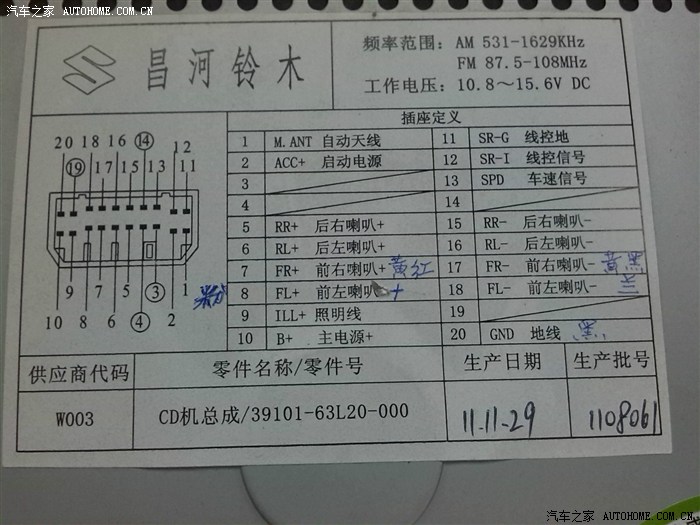 汽车之家 AUTOHOME.COM.CN
汽车之家 AUTOHOME.COM.CN
昌河铃木
频率范围: AM 531-1629KHz
FM 87.5-108MHz
工作电压: 10.8~15.6V DC
插座定义
20 18 16 ⑭ 12
⑲ 17 15 13 11
9 7 5 ③ 1
10 8 6 ④ 2
1 M.ANT 自动天线 11 SR-G 线控地
2 ACC+ 启动电源 12 SR-I 线控信号
3 13 SPD 车速信号
4 14
5 RR+ 后右喇叭+ 15 RR- 后右喇叭-
6 RL+ 后左喇叭+ 16 RL- 后左喇叭-
7 FR+ 前右喇叭+ 黄红 17 FR- 前右喇叭- 黄黑
8 FL+ 前左喇叭+ 18 FL- 前左喇叭- 兰
9 ILL+ 照明线 19
10 B+ 主电源+ 20 GND 地线 黑
供应商代码 零件名称/零件号 生产日期 生产批号
W003 CD机总成/39101-63L20-000 11.11.29 1108061
汽车之家 AUTOHOME.COM.CN